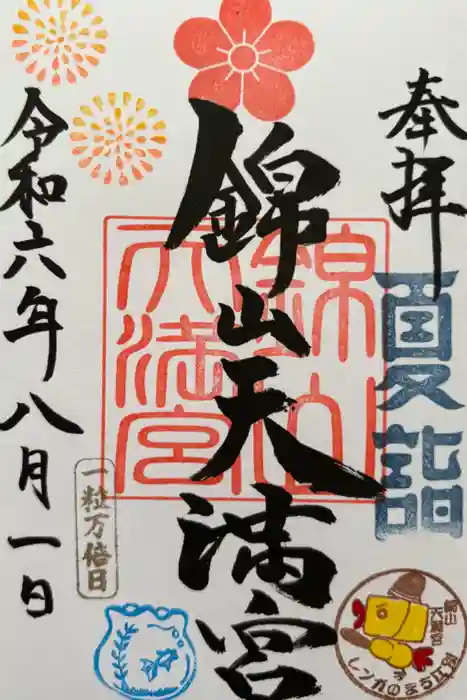 奉拝
夏詣
錦山天満宮
錦山天満宮
令和六年八月一日
一粒万倍日
錦山天満宮
レンガのまち江別